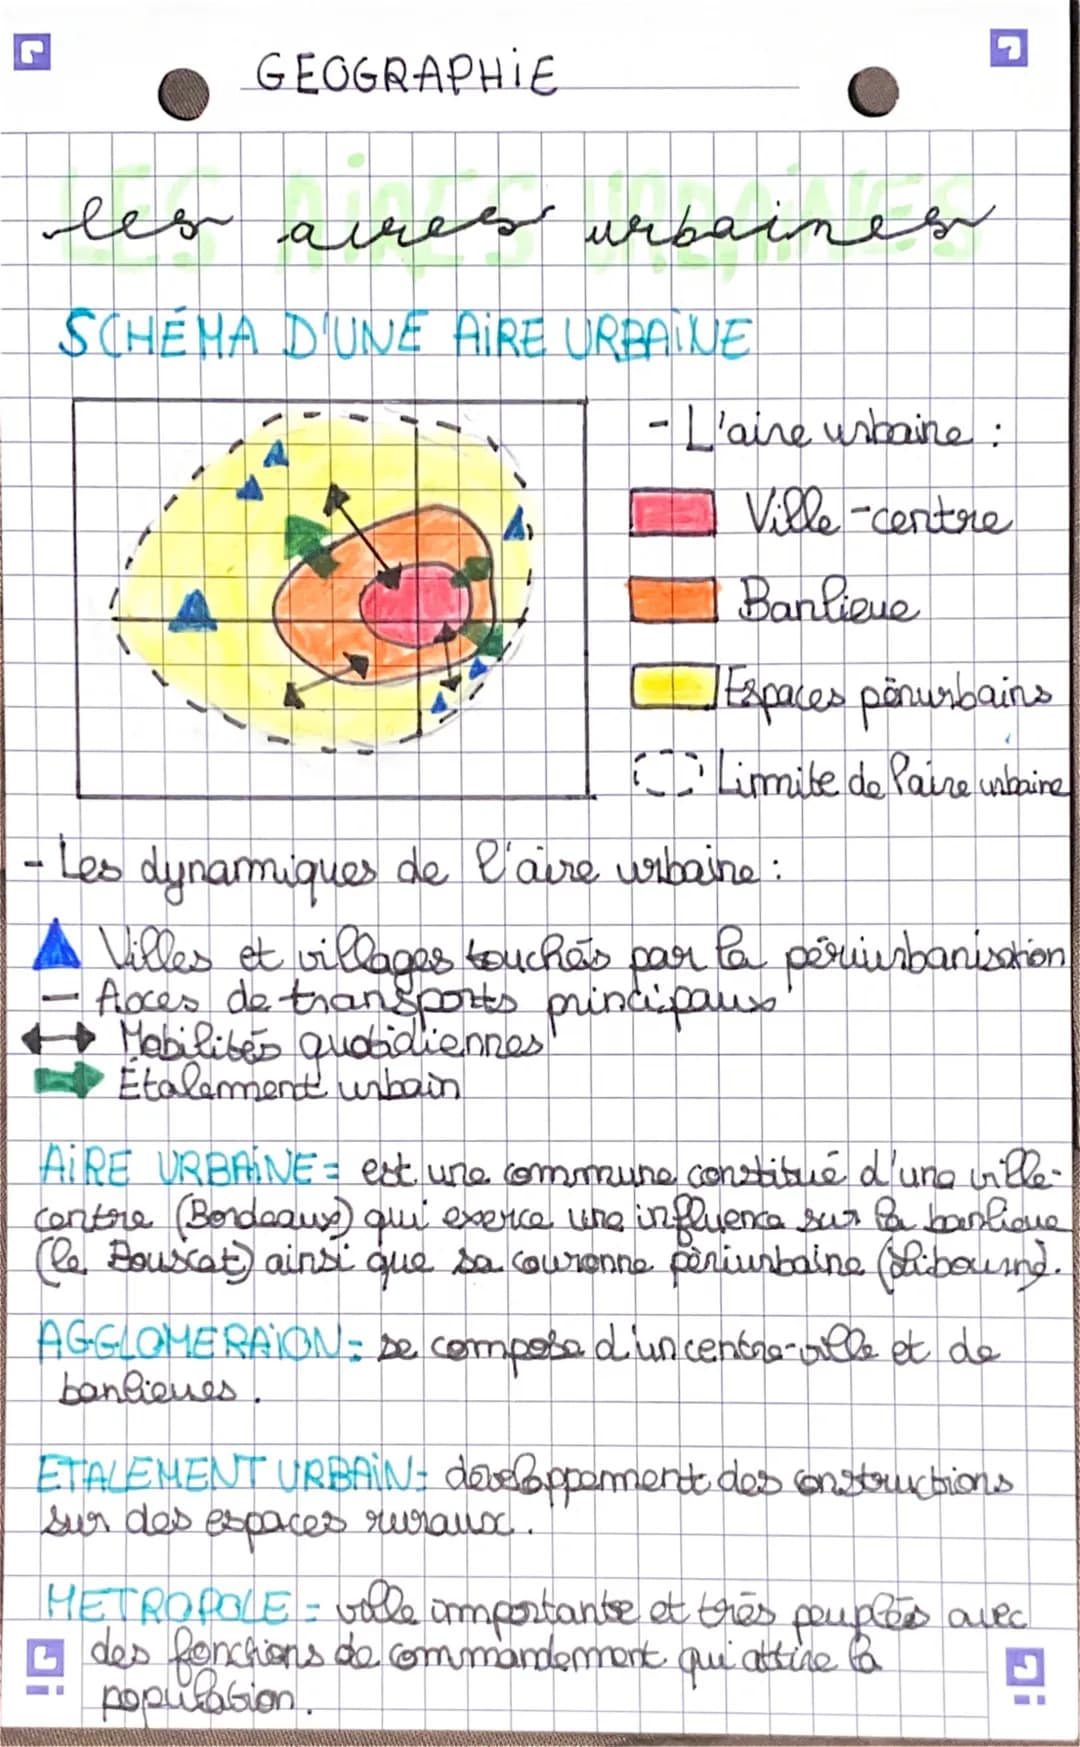 GEOGRAPHiE
LES AiRES URBAiNES
les aires urbaines
SCHÉMA D'UNE AiRE URBAiNE
- L'aire urbaine :
Ville-centre
Banlieue
Espaces périurbains
Limite de l'aire urbaine
- Les dynamiques de l'aire urbaine :
Villes et villages touchés par la périurbanisation
Axces de transports principaux
Mobilités quotidiennes
Étalement urbain
AiRE URBAiNE = est une commune constitué d'une ville-
centre (Bordeaux) qui exerce une influence sur la banlieue
(le Bouscat) ainsi que sa couronne périurbaine (Libourne).
AGGLOMERAiON = se compose d'un centre-ville et de
banlieues.
ETALEMENT URBAiN = développement des constructions
sur des espaces ruraux.
METROPOLE = ville importante et très peuplés avec
des fonctions de commandement qui attire la
population.